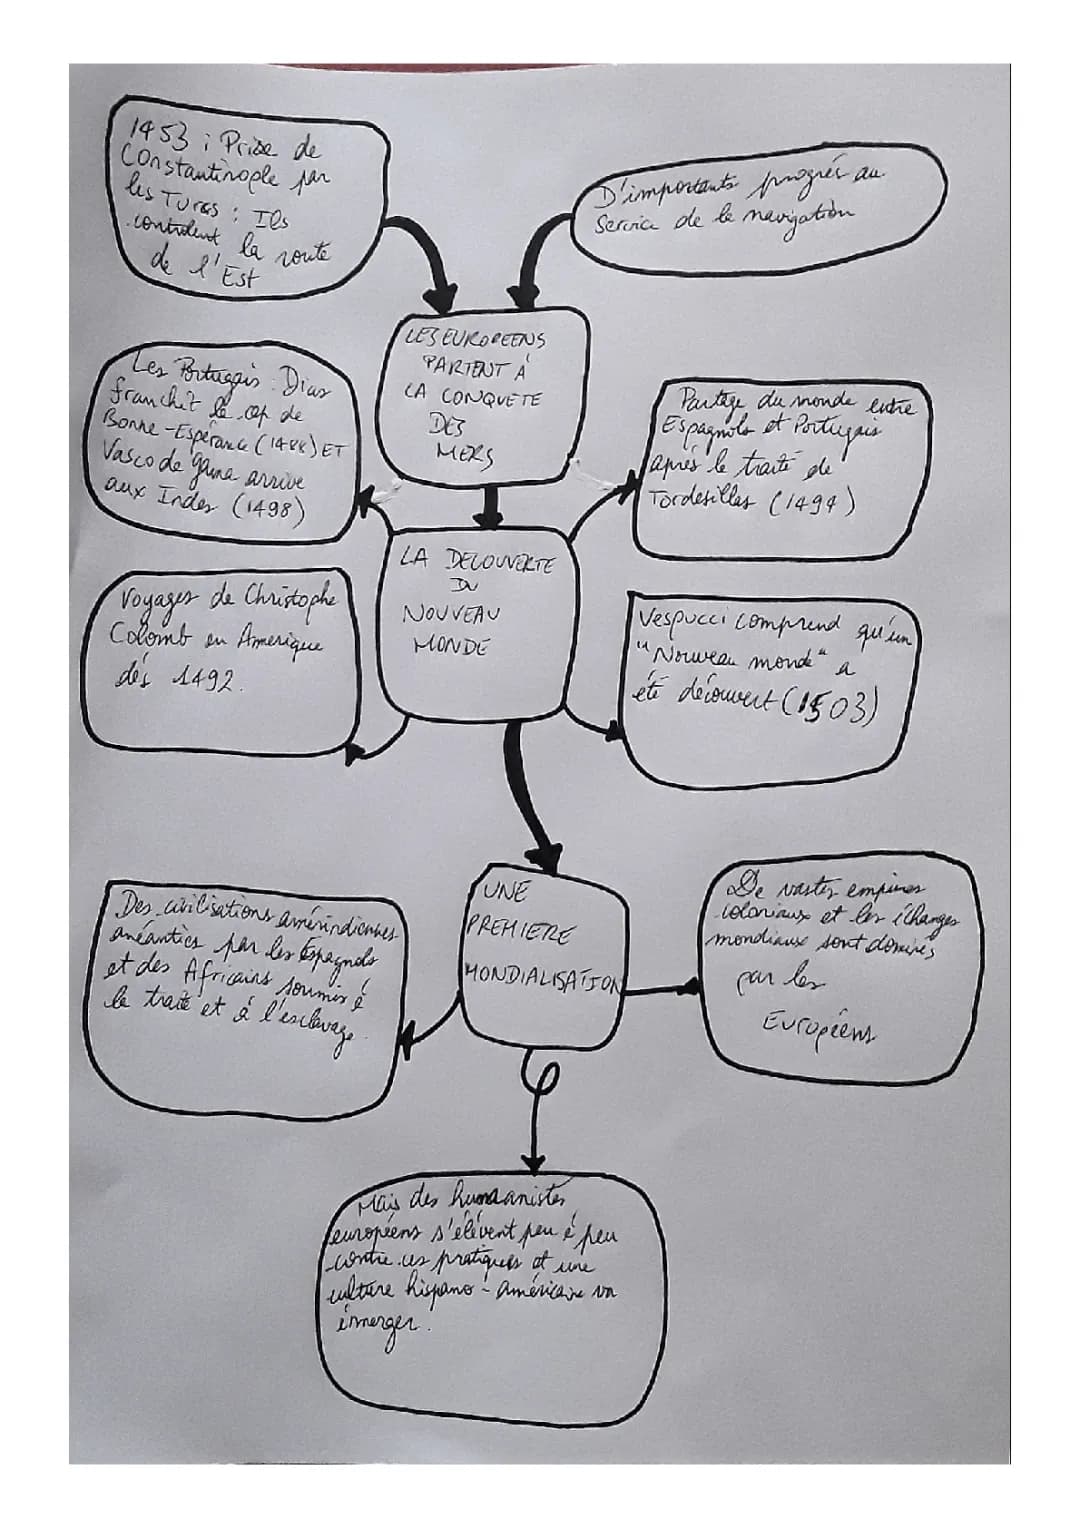 1453 : Prise de
Constantinople par
les Turcs : Ils
contrôlent la route
de l'Est
D'importants progrès au
Service de la navigation
LES EUROPEENS
PARTENT À
LA CONQUETE
DES
MERS
Les Portugais : Dias
franchit le cap de
Bonne-Espérance (1488) ET
Vasco de gama arrive
aux Indes (1498)
Partage du monde entre
Espagnols et Portugais
après le traité de
Tordesillas (1494)
LA DECOUVERTE
DU
NOUVEAU
MONDE
Voyages de Christophe
Colomb en Amerique
dès 1492.
Vespucci comprend qu'un
"Nouveau monde" a
été découvert (1503)
UNE
PREMIERE
MONDIALISATION
Des civilisations amérindiennes
anéanties par les Espagnols
et des Africains soumis à
la traite et à l'esclavage.
De vastes empires
coloniaux et les échanges
mondiaux sont dominés
par les
Européens
Mais des humanistes
européens s'élèvent peu à peu
contre ces pratiques et une
culture hispano-américaine va
émerger.